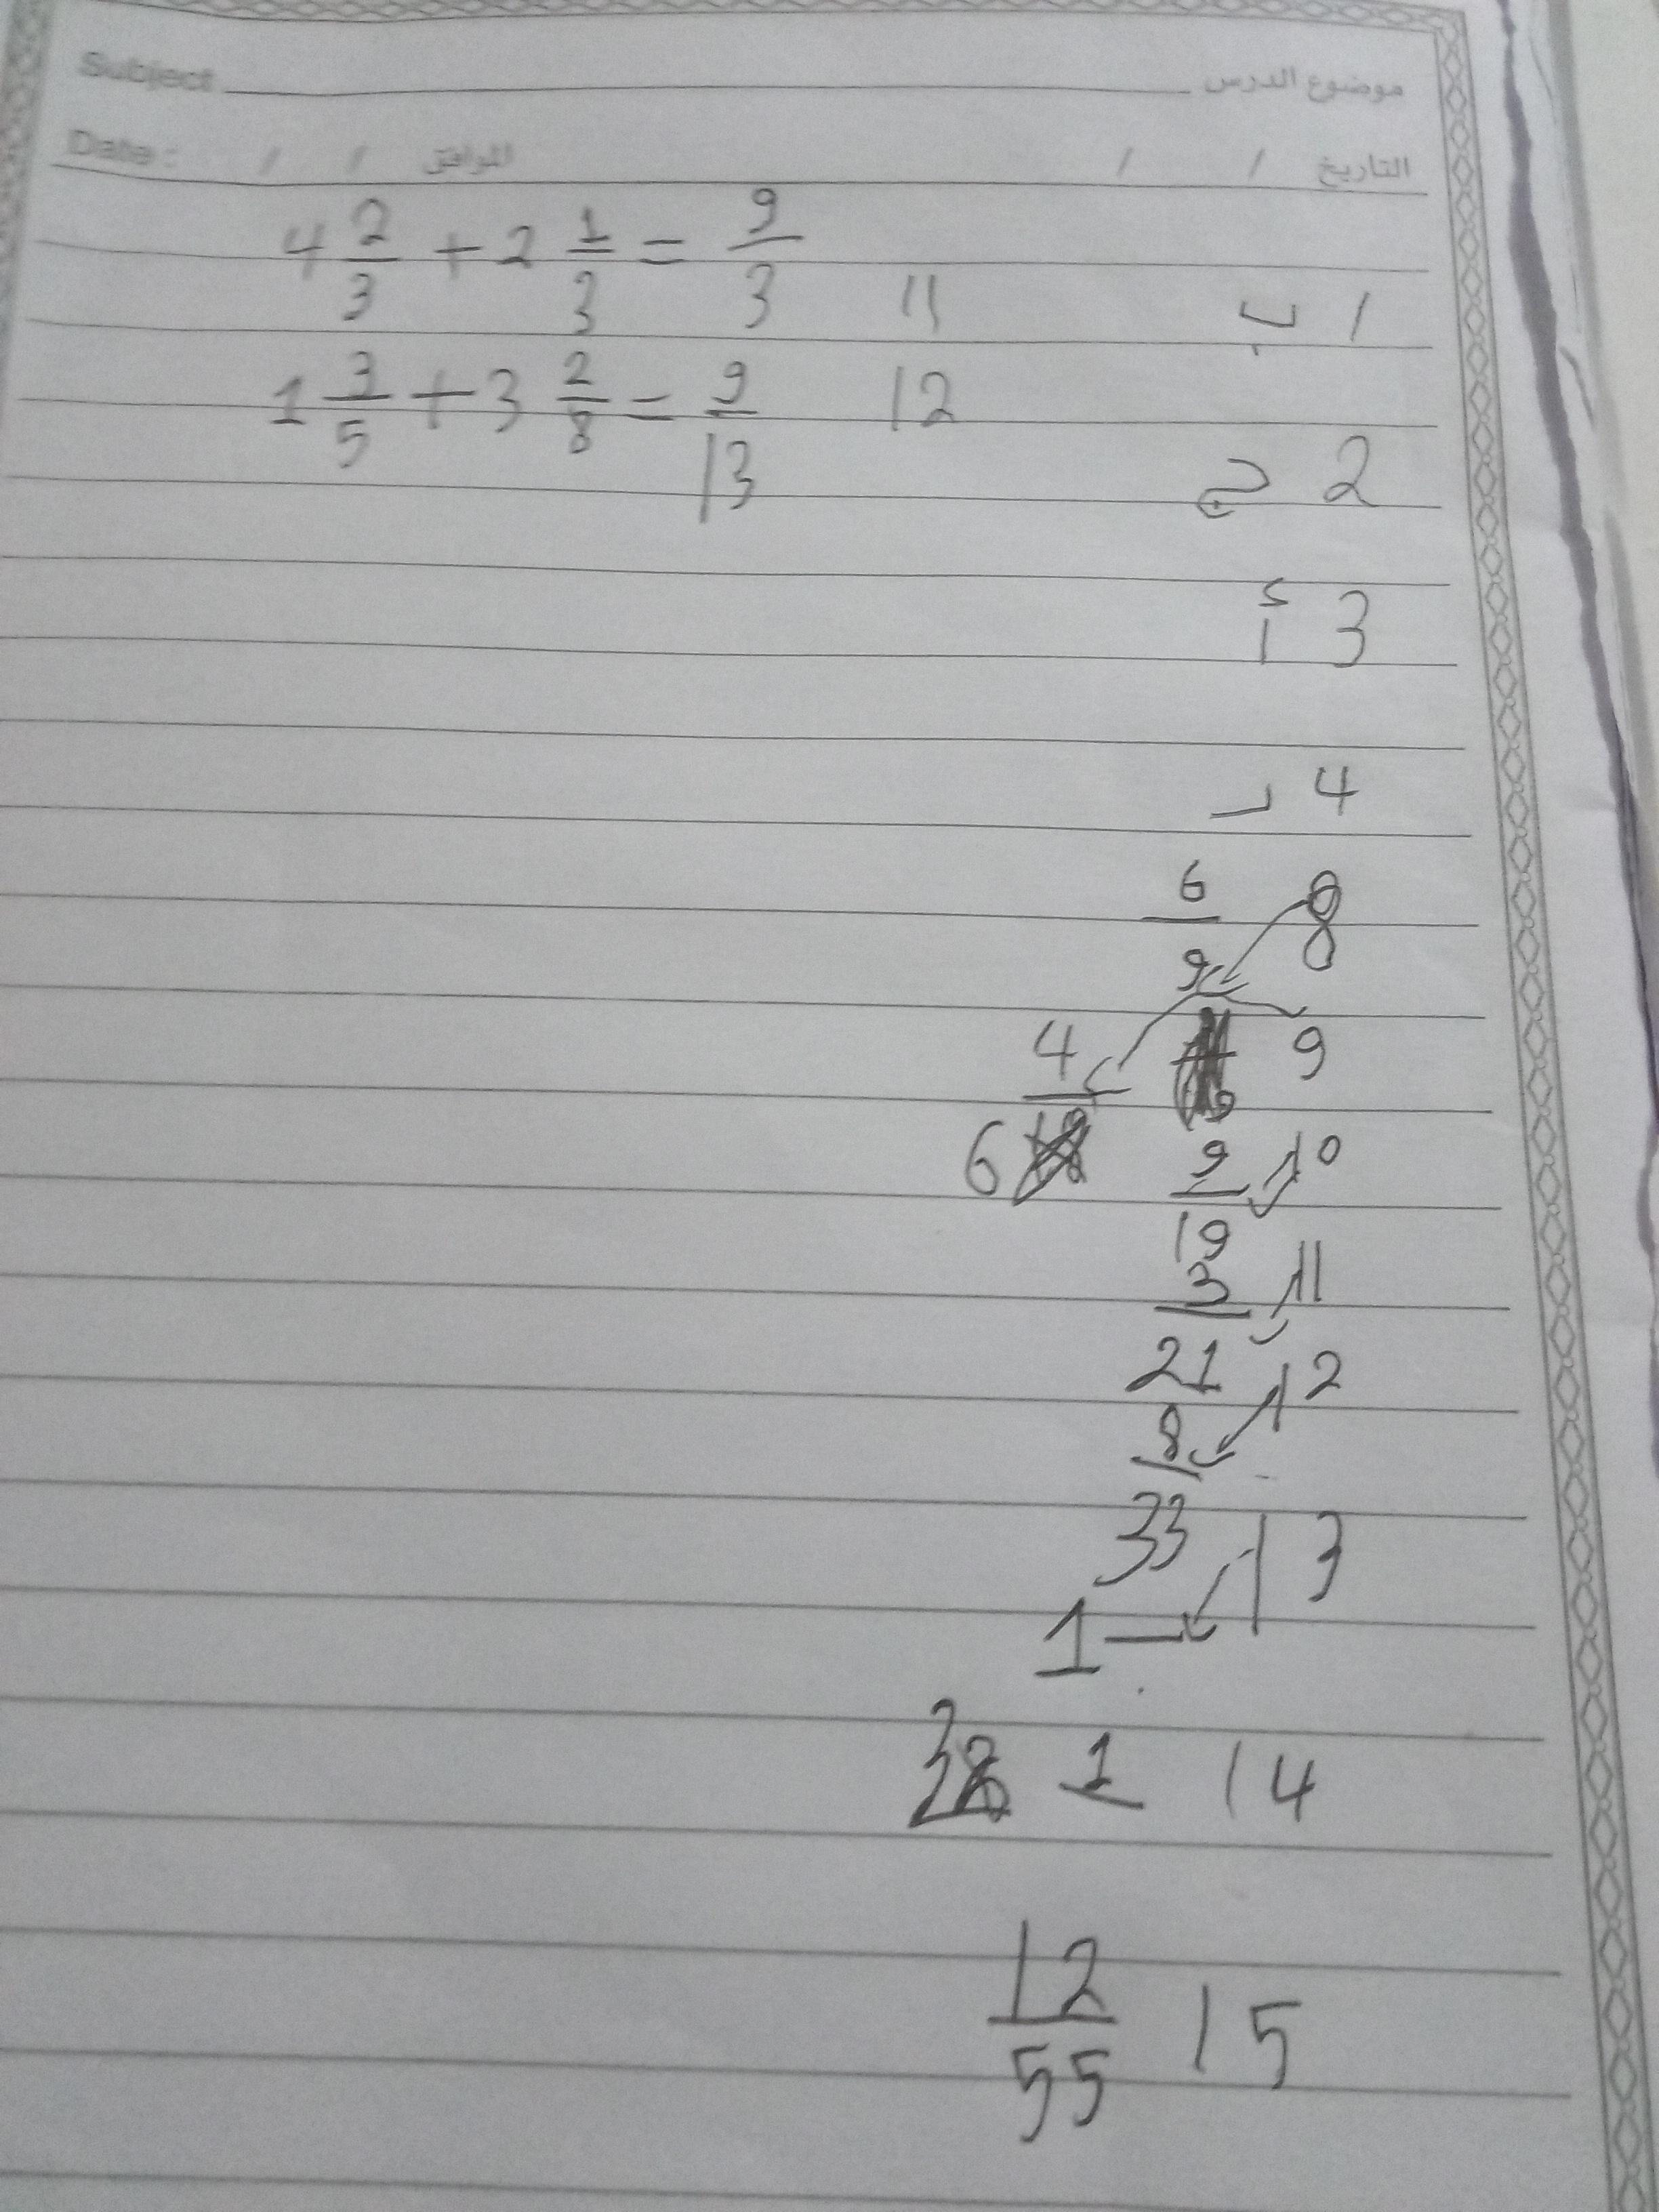 Subject موضوع الدرس
Date: / / الموافق / / التاريخ
4 2/3 + 2 1/3 = 9/3 11
1 3/5 + 3 2/8 = 9/13 12
1 ب
2 ج
3 أ
4 د
8 6/9
9 4/6
10 9/19
11 3/21
12 8/33
13 1
14 1
15 12/55